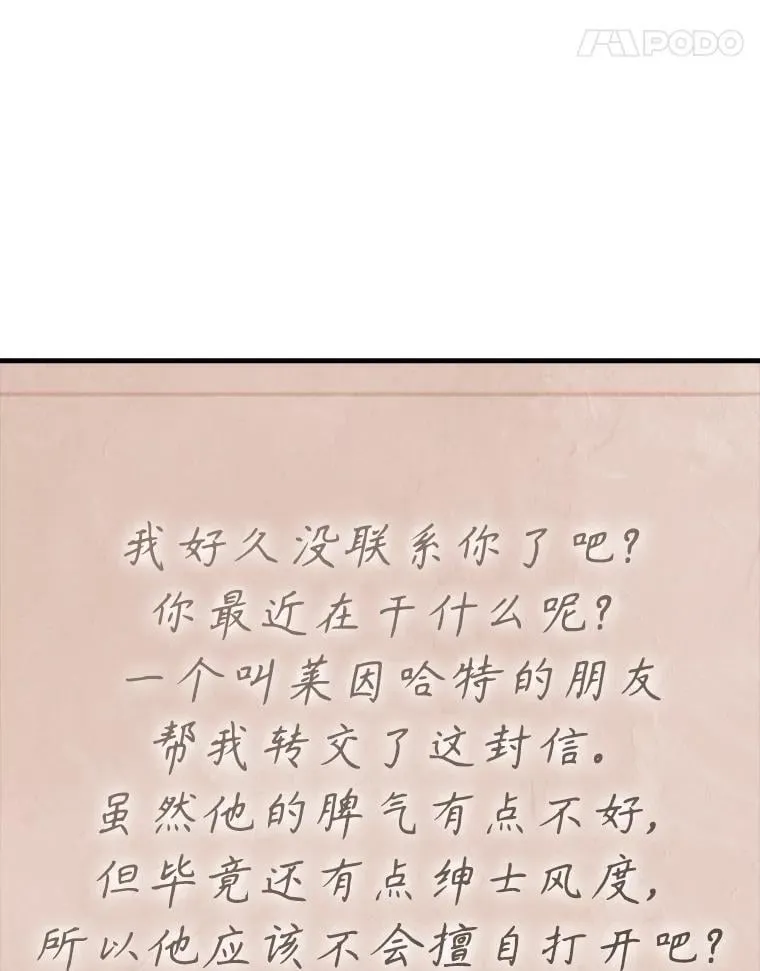 PODO
我好久没联系你了吧?
你最近在干什么呢?
一个叫莱因哈特的朋友
帮我转交了这封信。
虽然他的脾气有点不好,
但毕竟还有点绅士风度,
所以他应该不会擅自打开吧?